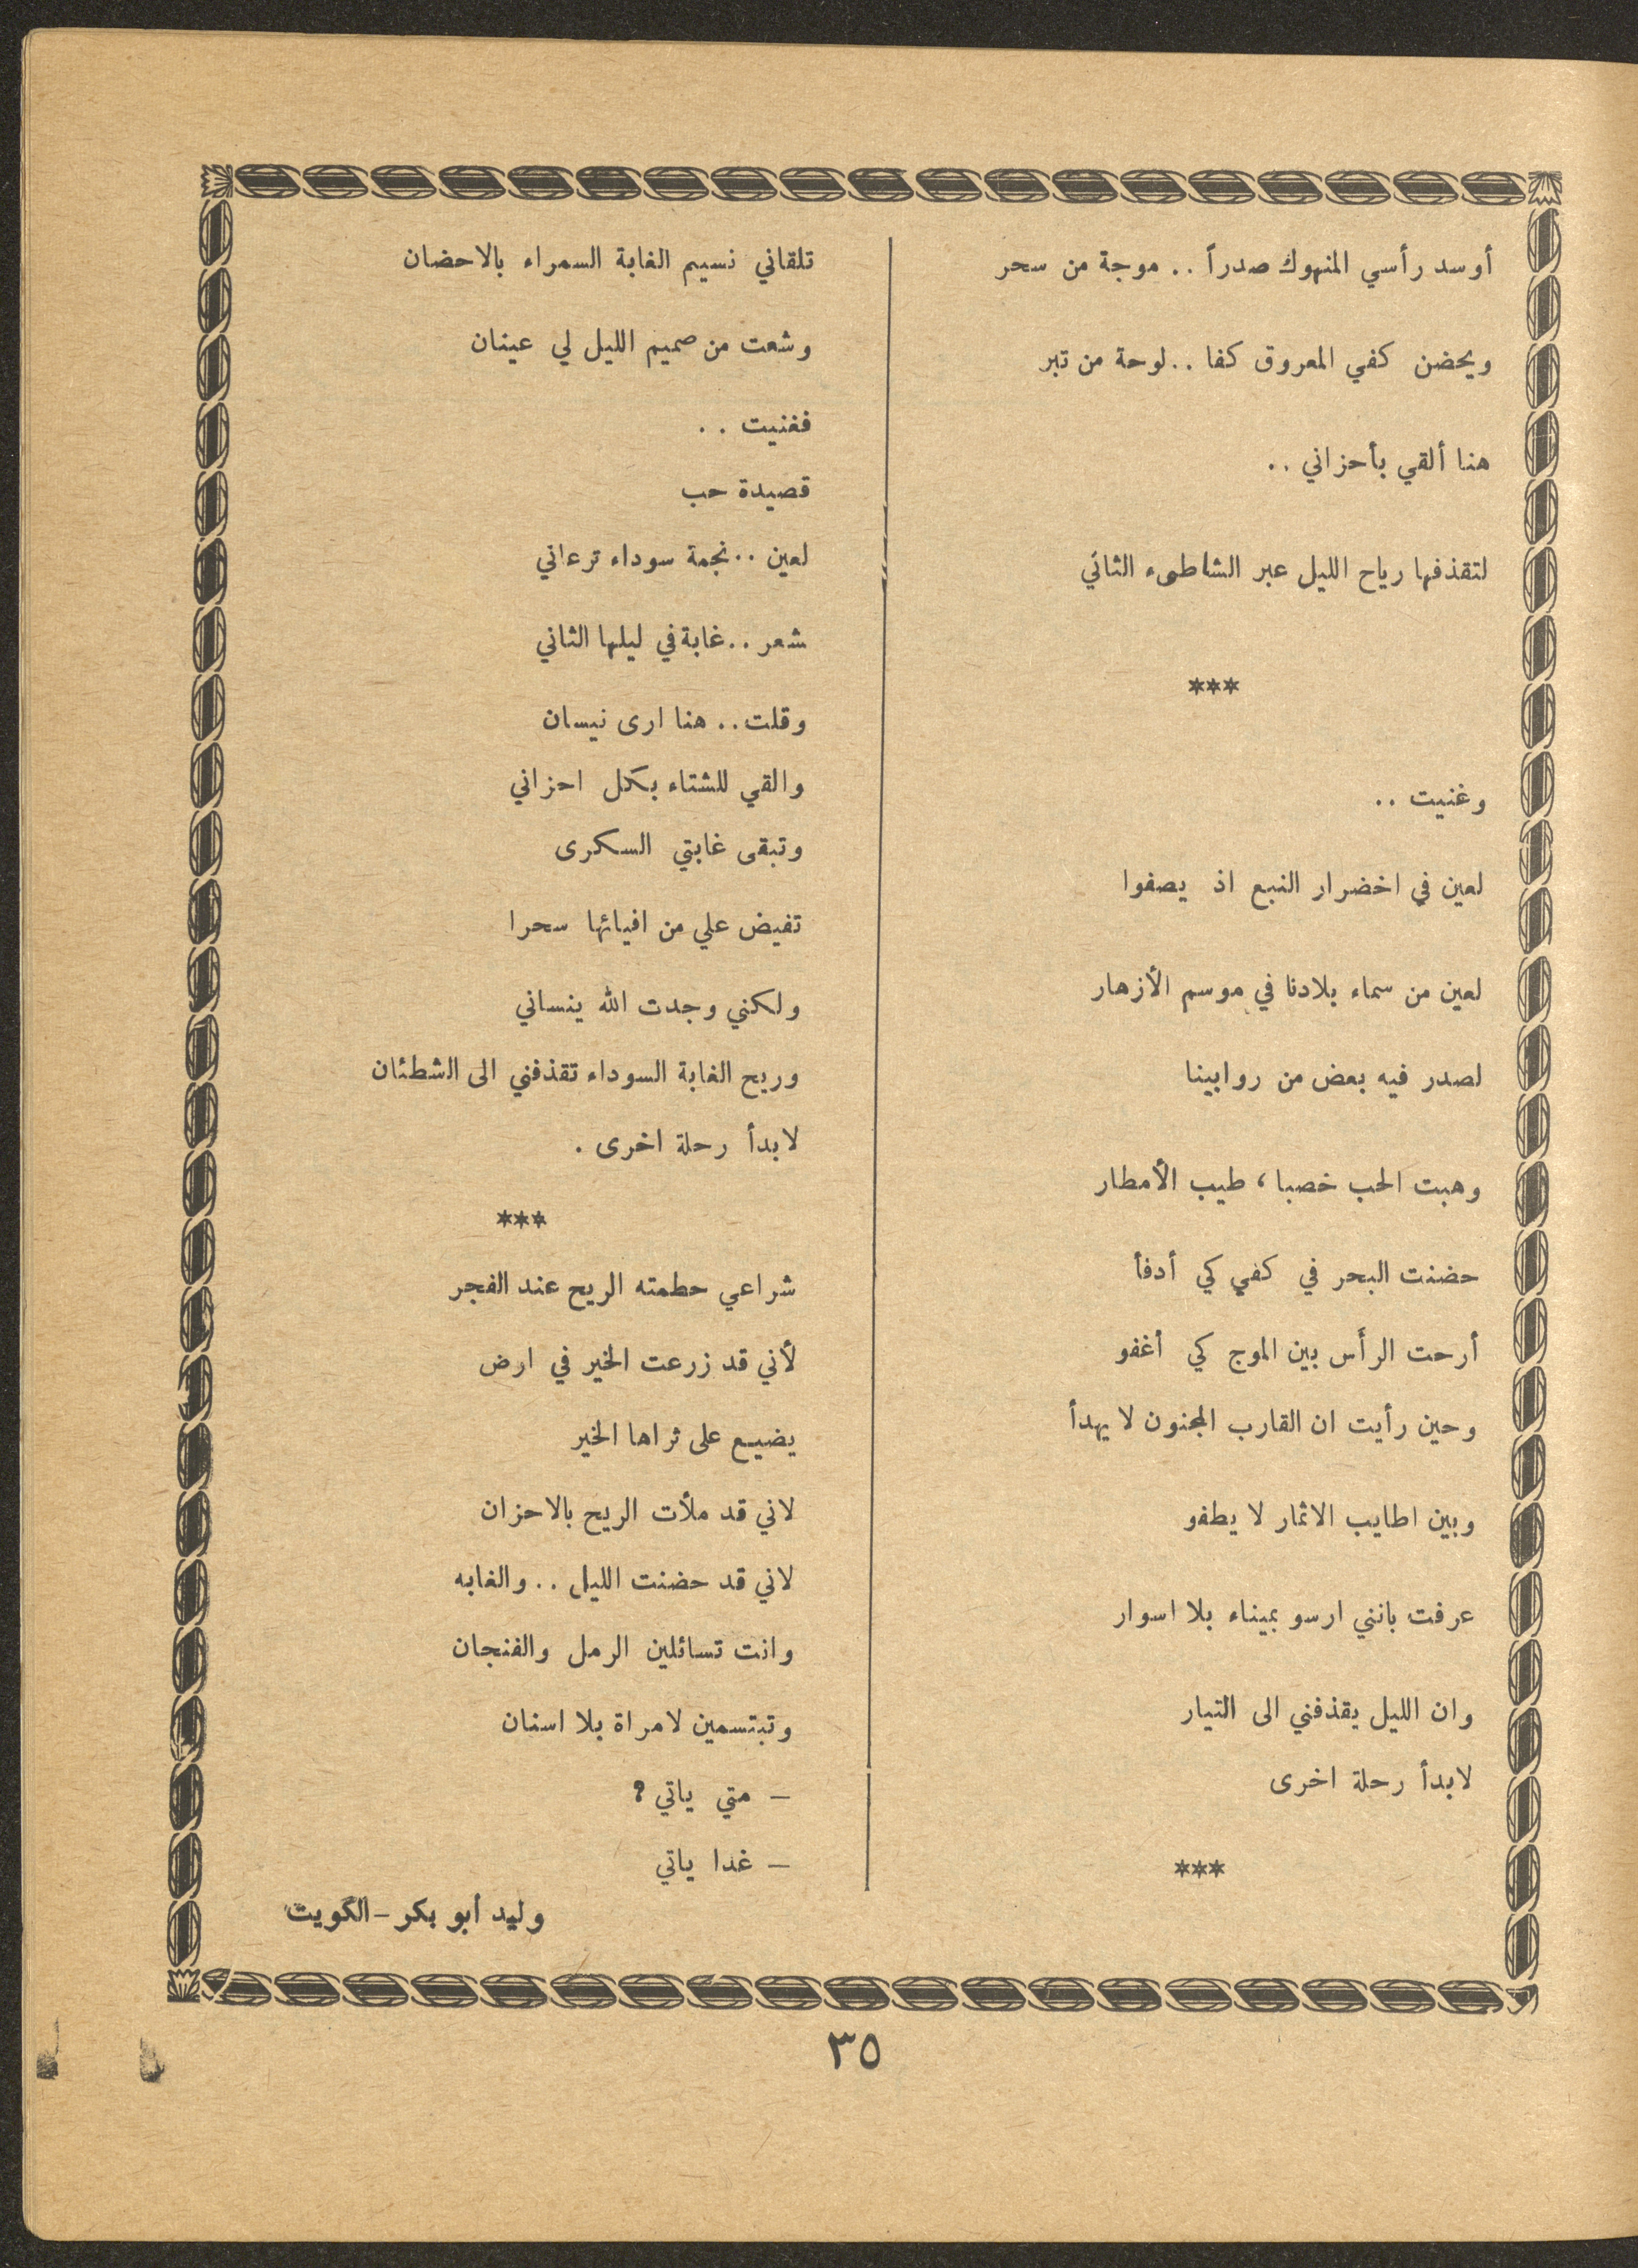 أوسد رأسي المنهوك صدراً .. موجة من سحر
ويحضن كفي المعروق كفا .. لوحة من تبر
هنا ألقي بأحزاني ..
لتقذفها رياح الليل عبر الشاطىء الثاني
***
وغنيت ..
لعين في اخضرار النبع اذ يصفوا
لعين من سماء بلادنا في موسم الأزهار
لصدر فيه بعض من روابينا
وهبت الحب خصبا ، طيب الأمطار
حضنت البحر في كفي كي أدفأ
أرحت الرأس بين الموج كي أغفو
وحين رأيت ان القارب المجنون لا يهدأ
وبين اطايب الاثمار لا يطفو
عرفت بانني ارسو بميناء بلا اسوار
وان الليل يقذفني الى التيار
لابدأ رحلة اخرى
***
تلقاني نسيم الغابة السمراء بالاحضان
وشعت من صميم الليل لي عينان
فغنيت ..
قصيدة حب
لعين .. نجمة سوداء ترعاني
شعر .. غابة في ليلها الثاني
وقلت .. هنا ارى نيسان
والقي للشتاء بكل احزاني
وتبقى غابتي السكرى
تفيض علي من افيائها سحرا
ولكني وجدت الله ينساني
وريح الغابة السوداء تقذفني الى الشطئان
لابدأ رحلة اخرى .
***
شراعي حطمته الريح عند الفجر
لأني قد زرعت الخير في ارض
يضيع على ثراها الخير
لاني قد ملأت الريح بالاحزان
لاني قد حضنت الليل .. والغابه
وانت تسائلين الرمل والفنجان
وتبتسمين لامراة بلا اسنان
– متي ياتي ؟
– غدا ياتي
وليد أبو بكر – الكويت
٣٥